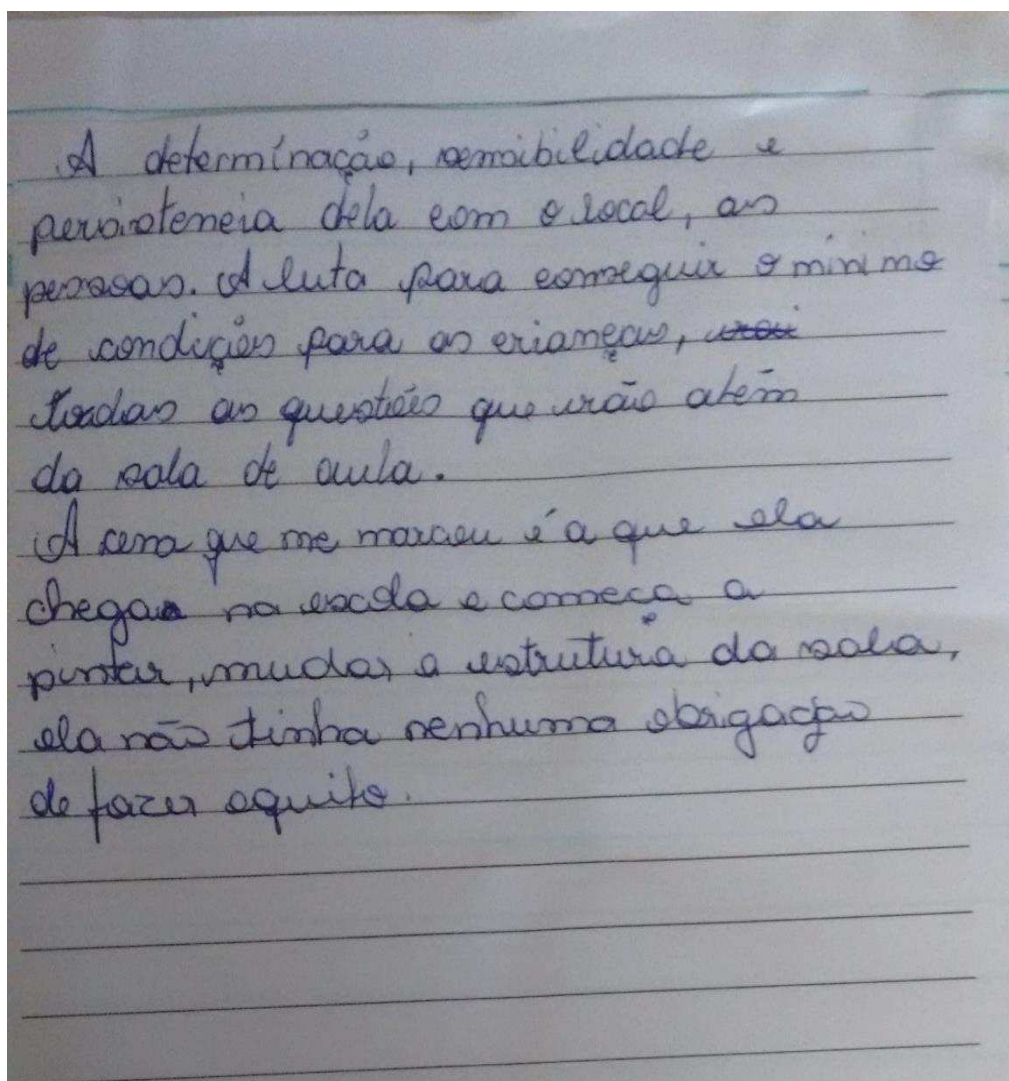 A determinação, sensibilidade e
persistencia dela com o local, as
pessoas. A luta para conseguir o minimo
de condições para as crianças,
todas as questões que vão além
da sala de aula.
A cena que me marcou é a que ela
chega na escola e começa a
pintar, mudar a estrutura da sala,
ela não tinha nenhuma obrigação
de fazer aquilo.